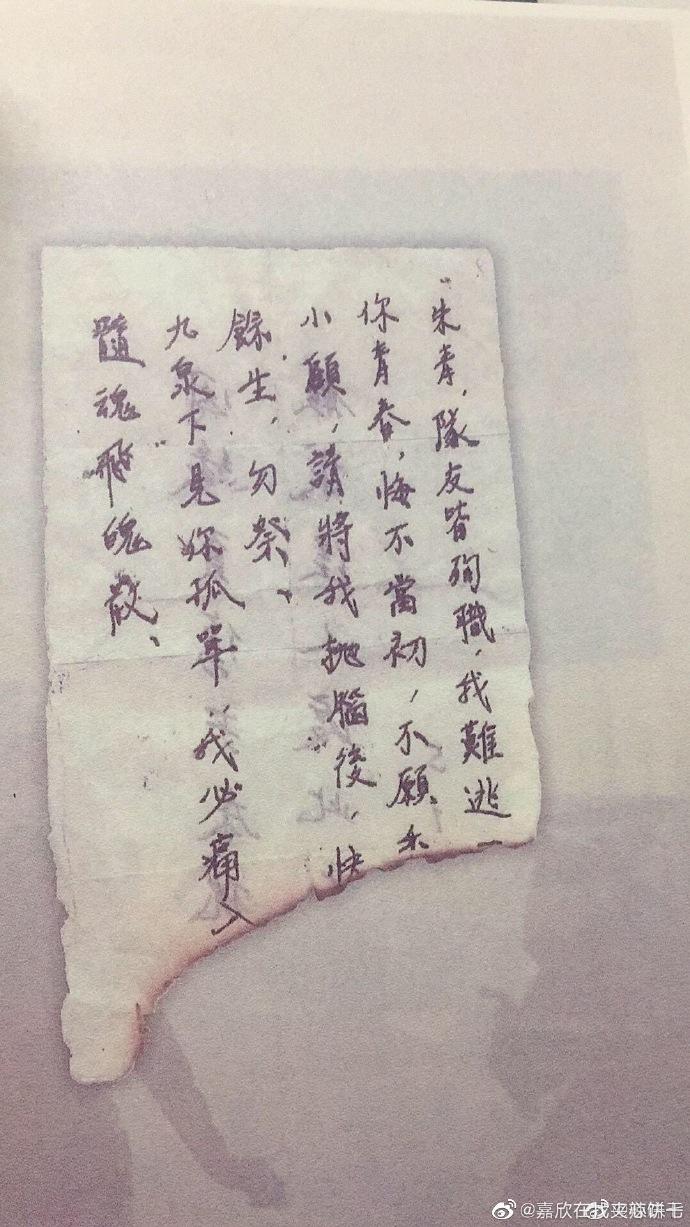 朱青，隊友皆殉職，我難逃一
你青春，悔不當初，不願
小顧，請將我拋腦後，快
餘生，勿祭、
九泉下見妳孤單，我必痛入
髓魂飛魄散、
@嘉欣在